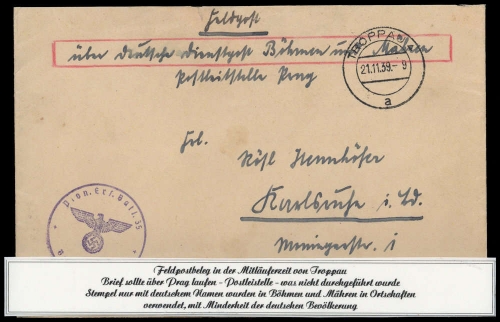 Feldpost
über Deutsche Dienstpost Böhmen und Mähren
Postleitstelle Prag
TROPPAU
21.11.39.- 9
a
Frl.
Karlsruhe i. Bd.
Pion. Ers. Batl. 35
Feldpostbeleg in der Mitläuferzeit von Troppau
Brief sollte über Prag laufen - Postleistelle - was nicht durchgeführt wurde
Stempel nur mit deutschem Namen wurden in Böhmen und Mähren in Ortschaften
verwendet, mit Minderheit der deutschen Bevölkerung